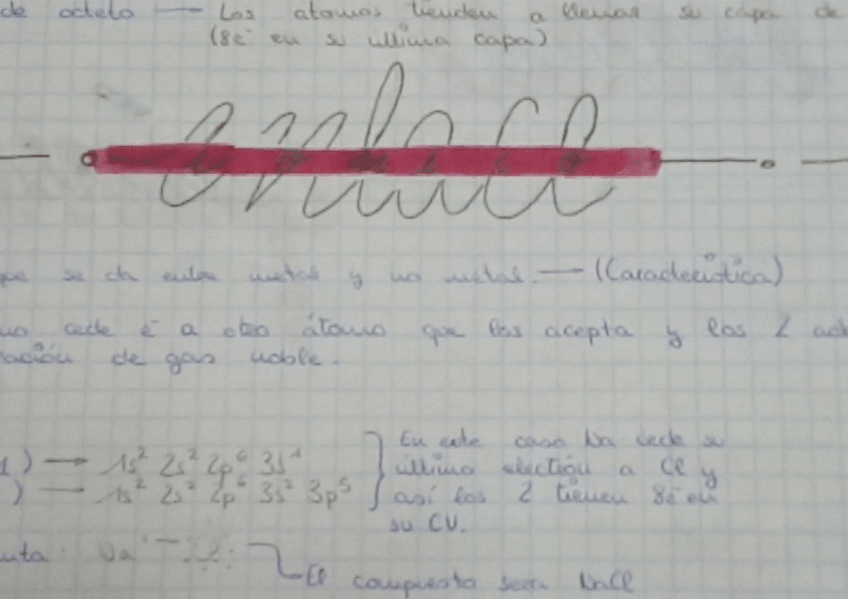 de octeto — Los átomos tienden a llenar su capa de
(8ē en su última capa)
enlace
que se da entre metal y no metal. — (Característica)
uno cede ē a otro átomo que los acepta y los 2
ración de gas noble.
1) → 1s² 2s² 2p⁶ 3s¹
) — 1s² 2s² 2p⁶ 3s² 3p⁵
En este caso Na cede su
último electrón a Cl y
así los 2 tienen 8ē en
su CV.
uta: Na
El compuesto será NaCl